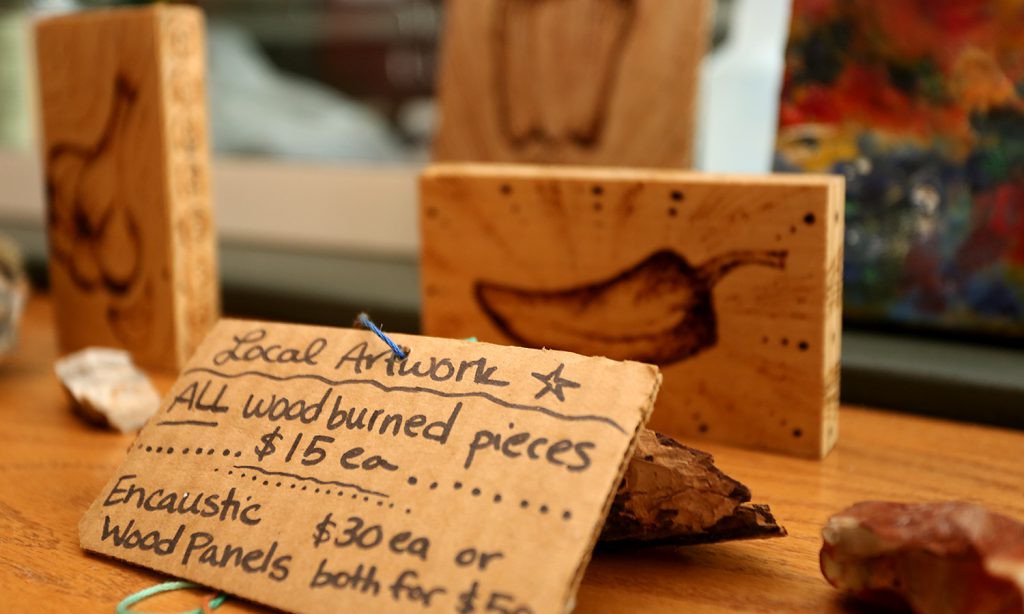 Local Artwork ☆
ALL woodburned pieces
$15 ea
Encaustic $30 ea or
Wood Panels both for $50